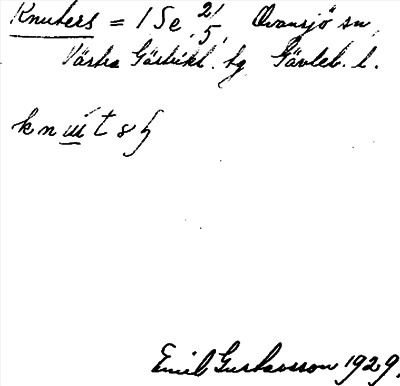 Knuters = 1 Se 2/5 Ovansjö sn,
Västra Gästrikl. hg Gävleb. l.
Emil Gustavsson 1929.